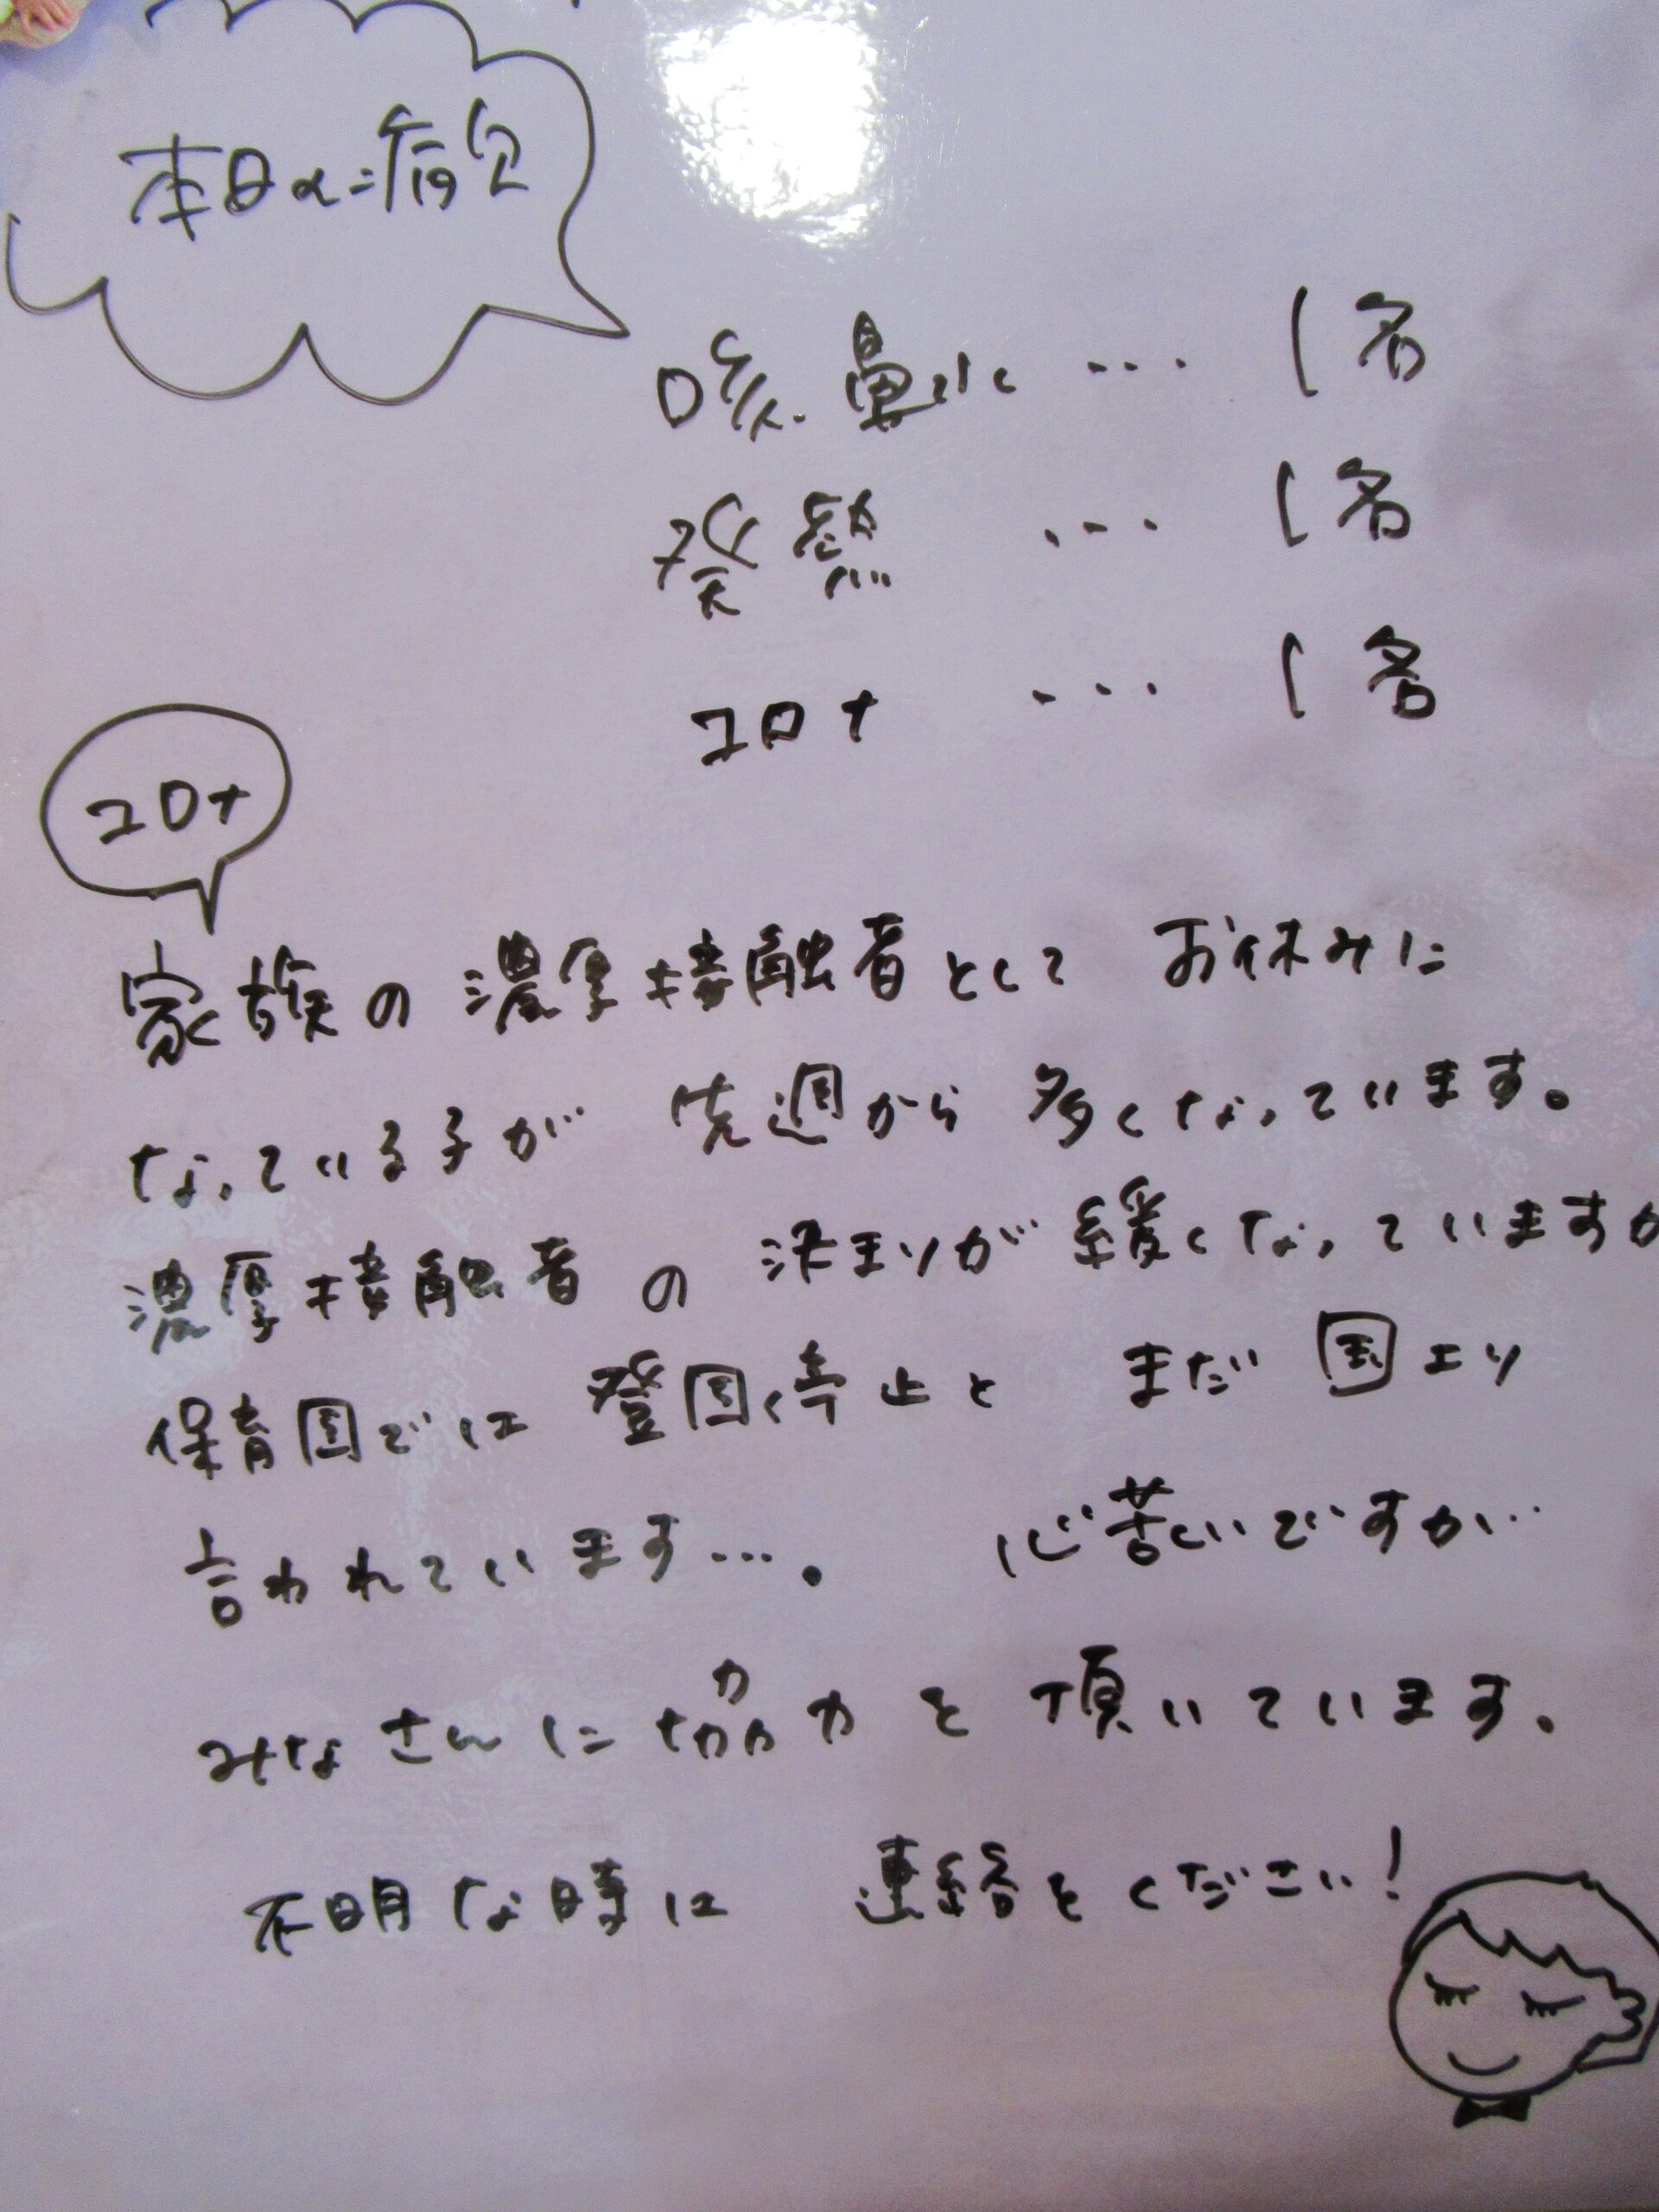 本日の病欠
咳・鼻水 ・・・ 1名
発熱 ・・・ 1名
コロナ ・・・ 1名
コロナ
家族の濃厚接触者として お休みに
なっている子が 先週から 多くなっています。
濃厚接触者の決まりが緩くなっていますが
保育園では登園停止と まだ国より
言われています…。 心苦しいですが…
みなさんに協力を頂いています。
不明な時は 連絡をください!